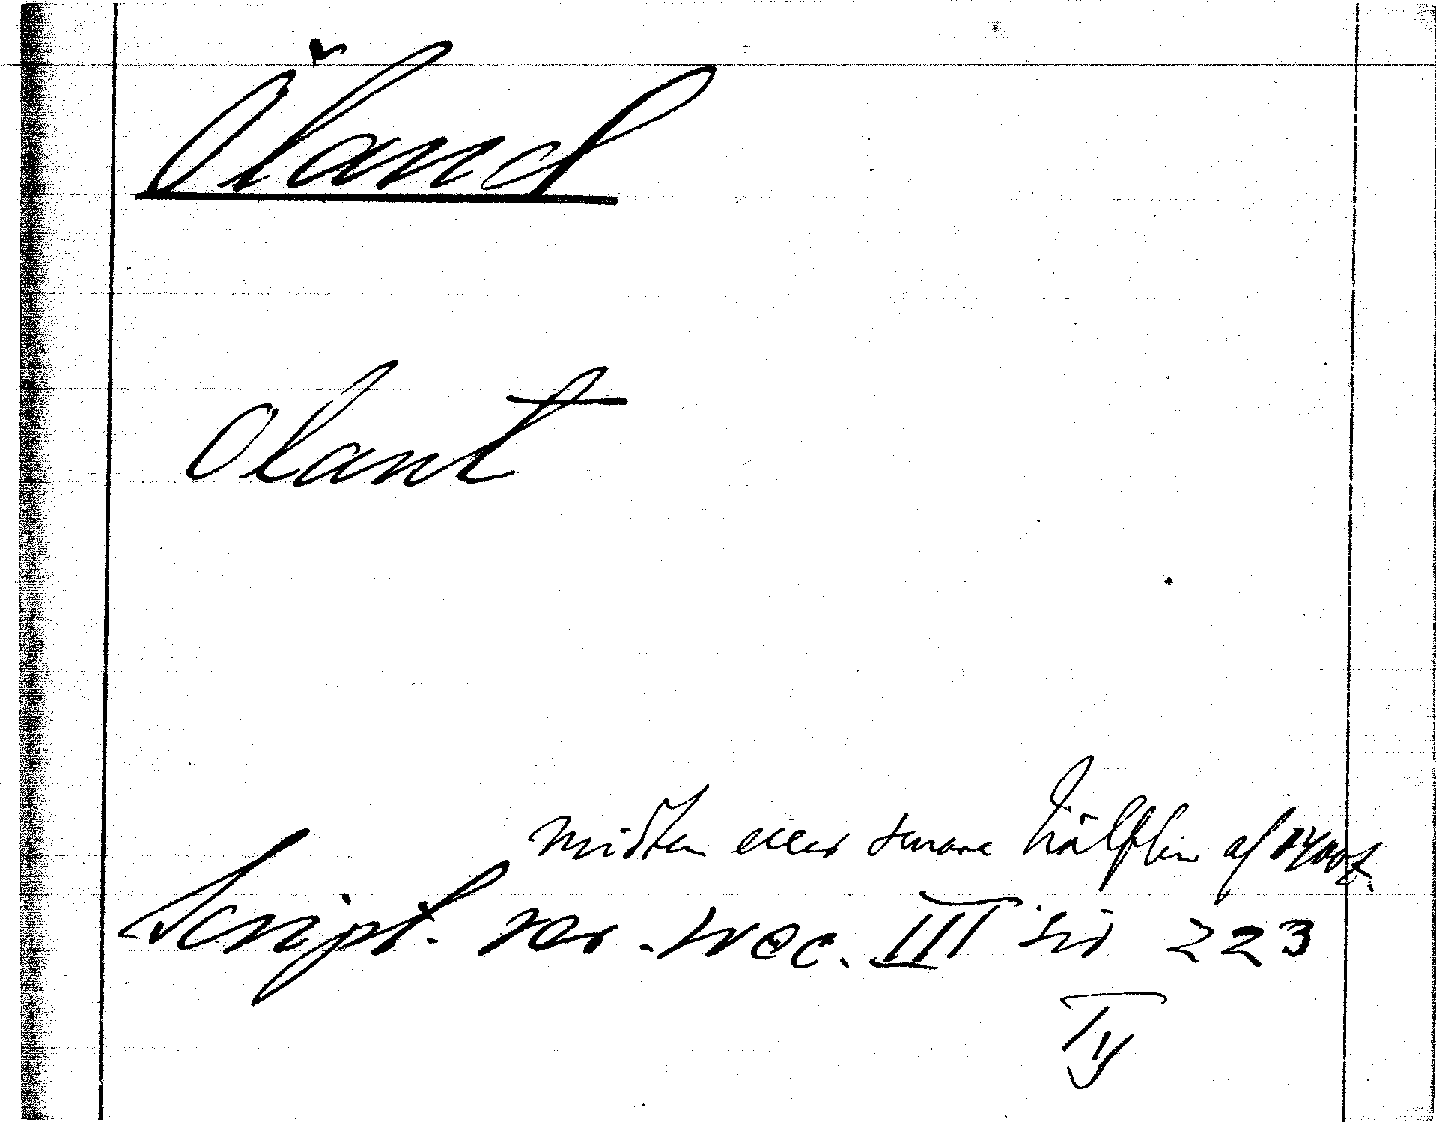 Öland
Olant
midten eller senare hälften af 1400t.
Script. rer. svec. III sid 223
Ty